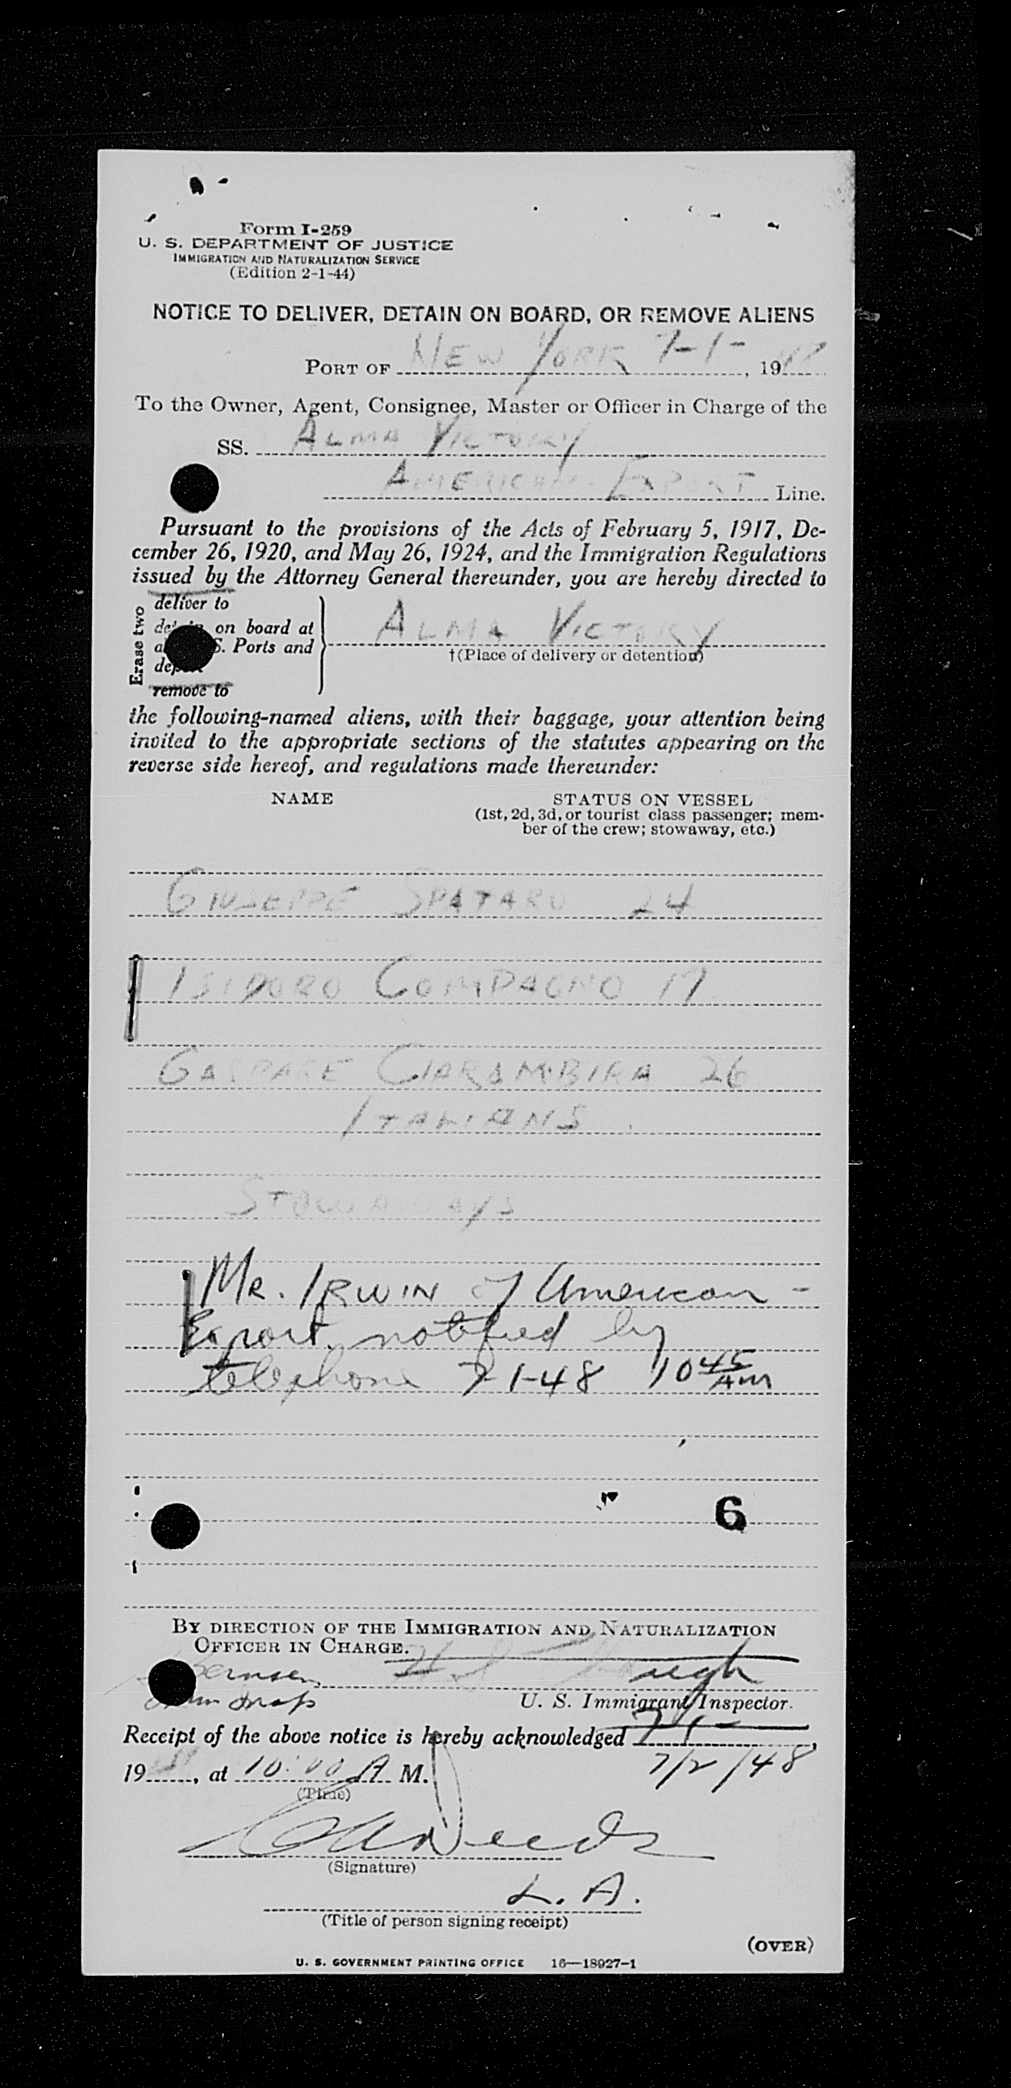 Form I-259
U. S. DEPARTMENT OF JUSTICE
IMMIGRATION AND NATURALIZATION SERVICE
(Edition 2-1-44)
NOTICE TO DELIVER, DETAIN ON BOARD, OR REMOVE ALIENS
PORT OF NEW YORK 7-1-, 19
To the Owner, Agent, Consignee, Master or Officer in Charge of the
SS. ALMA VICTORY
AMERICAN EXPORT Line.
Pursuant to the provisions of the Acts of February 5, 1917, De-
cember 26, 1920, and May 26, 1924, and the Immigration Regulations
issued by the Attorney General thereunder, you are hereby directed to
Erase two
deliver to
on board at
Ports and
remove to
ALMA VICTORY
†(Place of delivery or detention)
the following-named aliens, with their baggage, your attention being
invited to the appropriate sections of the statutes appearing on the
reverse side hereof, and regulations made thereunder:
NAME STATUS ON VESSEL
(1st, 2d, 3d, or tourist class passenger; mem-
ber of the crew; stowaway, etc.)
GIUSEPPE SPATARO 24
ISIDORO COMPAGNO 17
GASPARE CIARAMBIRA 26
ITALIANS
STOWAWAYS
MR. IRWIN of American
Export notified by
telephone 7-1-48 10 45 AM
6
BY DIRECTION OF THE IMMIGRATION AND NATURALIZATION
OFFICER IN CHARGE.
U. S. Immigrant Inspector.
Receipt of the above notice is hereby acknowledged 7/1
19, at 10:00 A M. 7/2/48
(Time)
(Signature)
L. A.
(Title of person signing receipt)
(OVER)
U. S. GOVERNMENT PRINTING OFFICE 16—18927-1